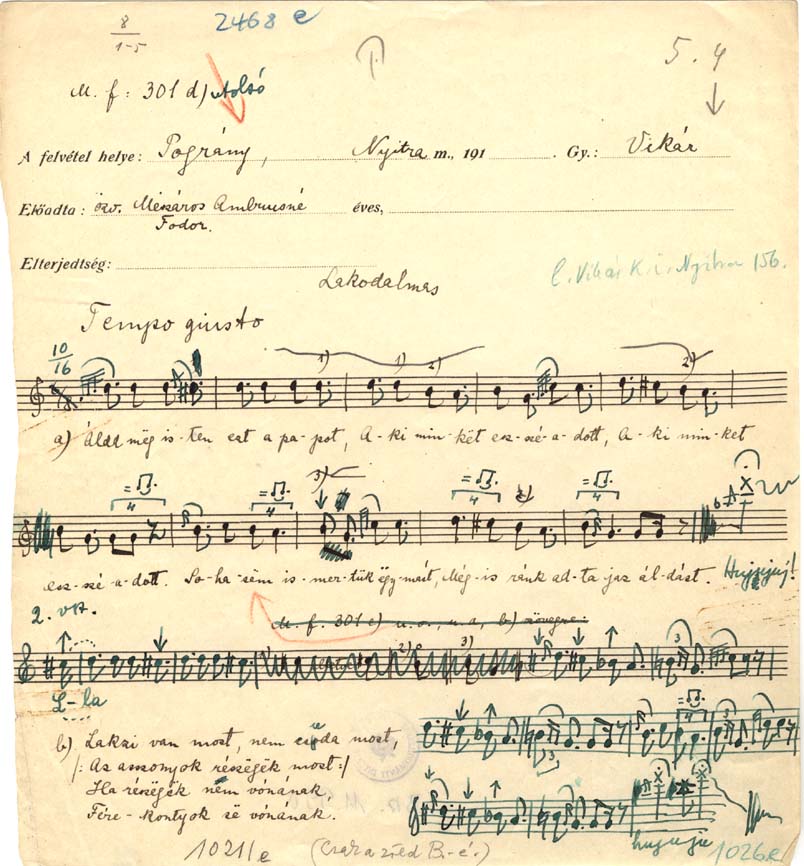 8
1-5
2468 e
5. 4
M. f: 301 d) utolsó
A felvétel helye: Pográny, Nyitra m., 191 . Gy.: Vikár
Előadta: özv. Mészáros Ambrusné éves,
Fodor.
Elterjedtség:
l. Vikár K. i. Nyitra 156.
Lakodalmas
Tempo giusto
10
16
1) 1) 2) 2)
a) Áldd még is-ten eat a pa-pot, A-ki min-két esz-szé-a-dott, A-ki min-ket
3)
esz-szé-a-dott. So-ha-sëm is-mer-tük égy-mást, Még-is ránk ad-ta jaz ál-dást. Hujujuj!
2. vsz.
M. f. 301 e) u. o., u. a, b) szövegre:
L-la
b) Lakzi van most, nem csoda most,
/: Az asszonyok részëgëk most :/
Ha részëgëk nëm vónának
Fére-kontyok së vónának.
hujujuj
1021/e
(Csak a zöld B.-é.)
1026.e